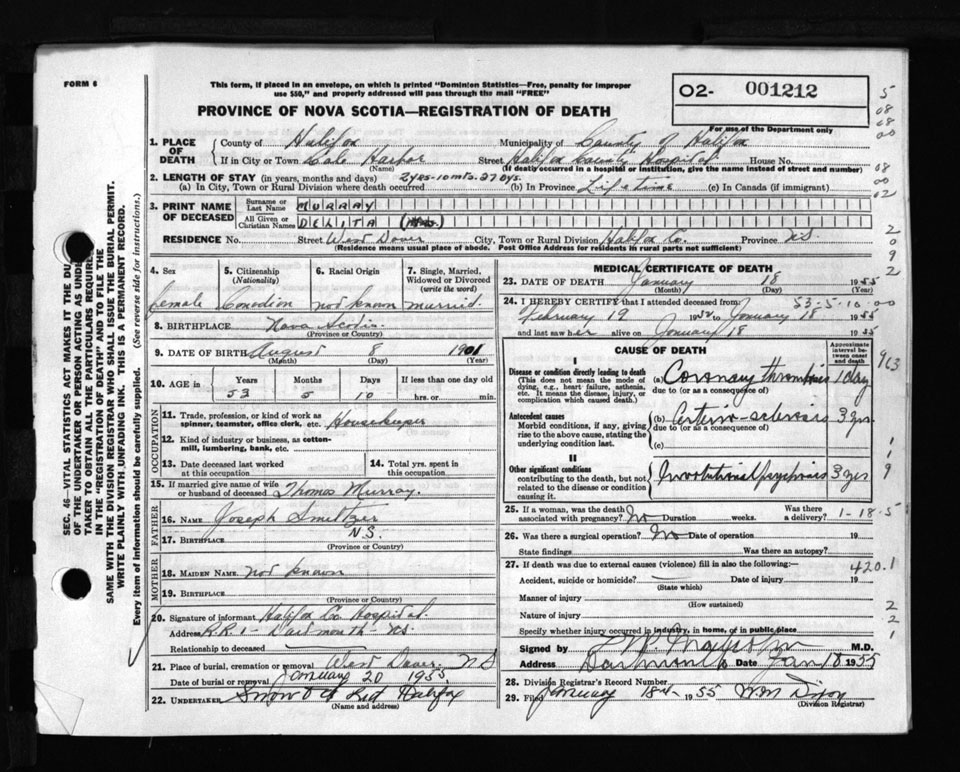 FORM 6
This form, if placed in an envelope, on which is printed "Dominion Statistics—Free, penalty for improper
use $50," and properly addressed will pass through the mail "FREE"
PROVINCE OF NOVA SCOTIA—REGISTRATION OF DEATH
O2- 001212
For use of the Department only
1. PLACE OF DEATH County of Halifax Municipality of County of Halifax
If in City or Town Cole Harbor (Name) Street Halifax County Hospital House No.
(If death occurred in a hospital or institution, give the name instead of street and number)
2. LENGTH OF STAY (in years, months and days) 2yrs-10mts.27dys.
(a) In City, Town or Rural Division where death occurred (b) In Province Lifetime (c) In Canada (if immigrant)
3. PRINT NAME OF DECEASED Surname or Last Name MURRAY
All Given or Christian Names DELITA (Mrs.)
RESIDENCE No. Street West Dover City, Town or Rural Division Halifax Co. Province N.S.
(Residence means usual place of abode. Post Office Address for residents in rural parts not sufficient)
4. Sex female
5. Citizenship (Nationality) Canadian
6. Racial Origin not known
7. Single, Married, Widowed or Divorced (write the word) married.
8. BIRTHPLACE Nova Scotia (Province or Country)
9. DATE OF BIRTH August (Month) 8 (Day) 1901 (Year)
10. AGE in Years 53 Months 5 Days 10 If less than one day old hrs. or min.
OCCUPATION
11. Trade, profession, or kind of work as spinner, teamster, office clerk, etc. Housekeeper
12. Kind of industry or business, as cotton-mill, lumbering, bank, etc.
13. Date deceased last worked at this occupation
14. Total yrs. spent in this occupation
15. If married give name of wife or husband of deceased Thomas Murray.
FATHER
16. NAME Joseph Smeltzer
17. BIRTHPLACE N.S. (Province or Country)
MOTHER
18. MAIDEN NAME not known
19. BIRTHPLACE (Province or Country)
20. Signature of informant Halifax Co. Hospital.
Address R.R.1- Dartmouth - N.S.
Relationship to deceased
21. Place of burial, cremation or removal West Dover N.S
Date of burial or removal January 20 1955
22. UNDERTAKER Snow & Co Ltd Halifax
(Name and address)
MEDICAL CERTIFICATE OF DEATH
23. DATE OF DEATH January (Month) 18 (Day) 1955 (Year)
24. I HEREBY CERTIFY that I attended deceased from 53-5-10-00
February 19 1952 to January 18 1955
and last saw her alive on January 18 1955
CAUSE OF DEATH
Approximate interval between onset and death
I
Disease or condition directly leading to death
(This does not mean the mode of dying, e.g., heart failure, asthenia, etc. It means the disease, injury, or complication which caused death.)
(a) Coronary thrombosis 1 day
due to (or as a consequence of)
Antecedent causes
Morbid conditions, if any, giving rise to the above cause, stating the underlying condition last.
(b) Arterio-sclerosis 3 yrs
due to (or as a consequence of)
(c)
II
Other significant conditions
contributing to the death, but not related to the disease or condition causing it.
Involutional psychosis 3 yrs
25. If a woman, was the death associated with pregnancy? No Duration weeks. Was there a delivery? 1-18-5
26. Was there a surgical operation? No Date of operation 19
State findings Was there an autopsy?
27. If death was due to external causes (violence) fill in also the following:— 420.1
Accident, suicide or homicide? (State which) Date of injury 19
Manner of injury (How sustained)
Nature of injury
Specify whether injury occurred in industry, in home, or in public place
Signed by M.D.
Address Dartmouth Date Jan 18 1955
28. Division Registrar's Record Number
29. Filed January 18th 1955 Wm Dixon
(Division Registrar)
SEC. 46—VITAL STATISTICS ACT MAKES IT THE DU
OF THE UNDERTAKER OR PERSON ACTING AS UNDE
TAKER TO OBTAIN ALL THE PARTICULARS REQUIRE
IN THE "REGISTRATION OF DEATH" AND TO FILE THE
SAME WITH THE DIVISION REGISTRAR WHO SHALL ISSUE THE BURIAL PERMIT.
WRITE PLAINLY WITH UNFADING INK. THIS IS A PERMANENT RECORD.
Every item of information should be carefully supplied. (See reverse side for instructions.)
5
08
68
00
08
00
02
2
0
0
9
2
963
1
1
9
2
2
1